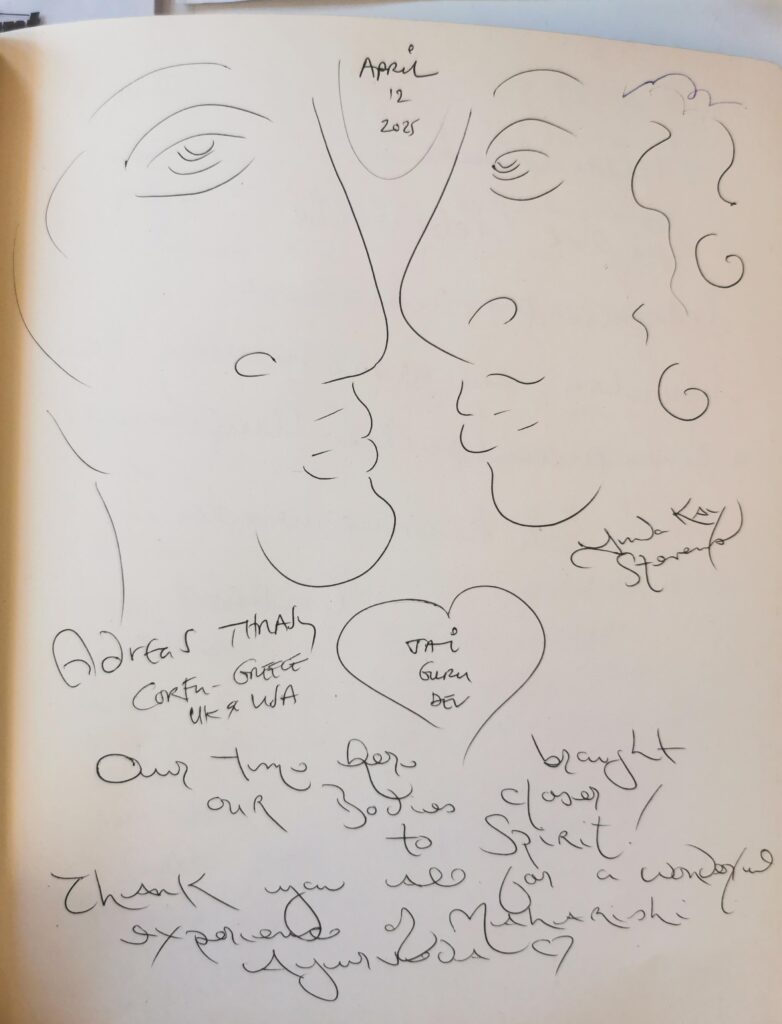 APRIL
12
2025
Kay
Stevens
ADreas THRASy
CORFU - GREECE
UK & USA
JAI
GURU
DEV
Our time here brought
OUR Bodies closer
to Spirit!
Thank you all for a wonderful
experience of MAHARISHI
Ayurveda